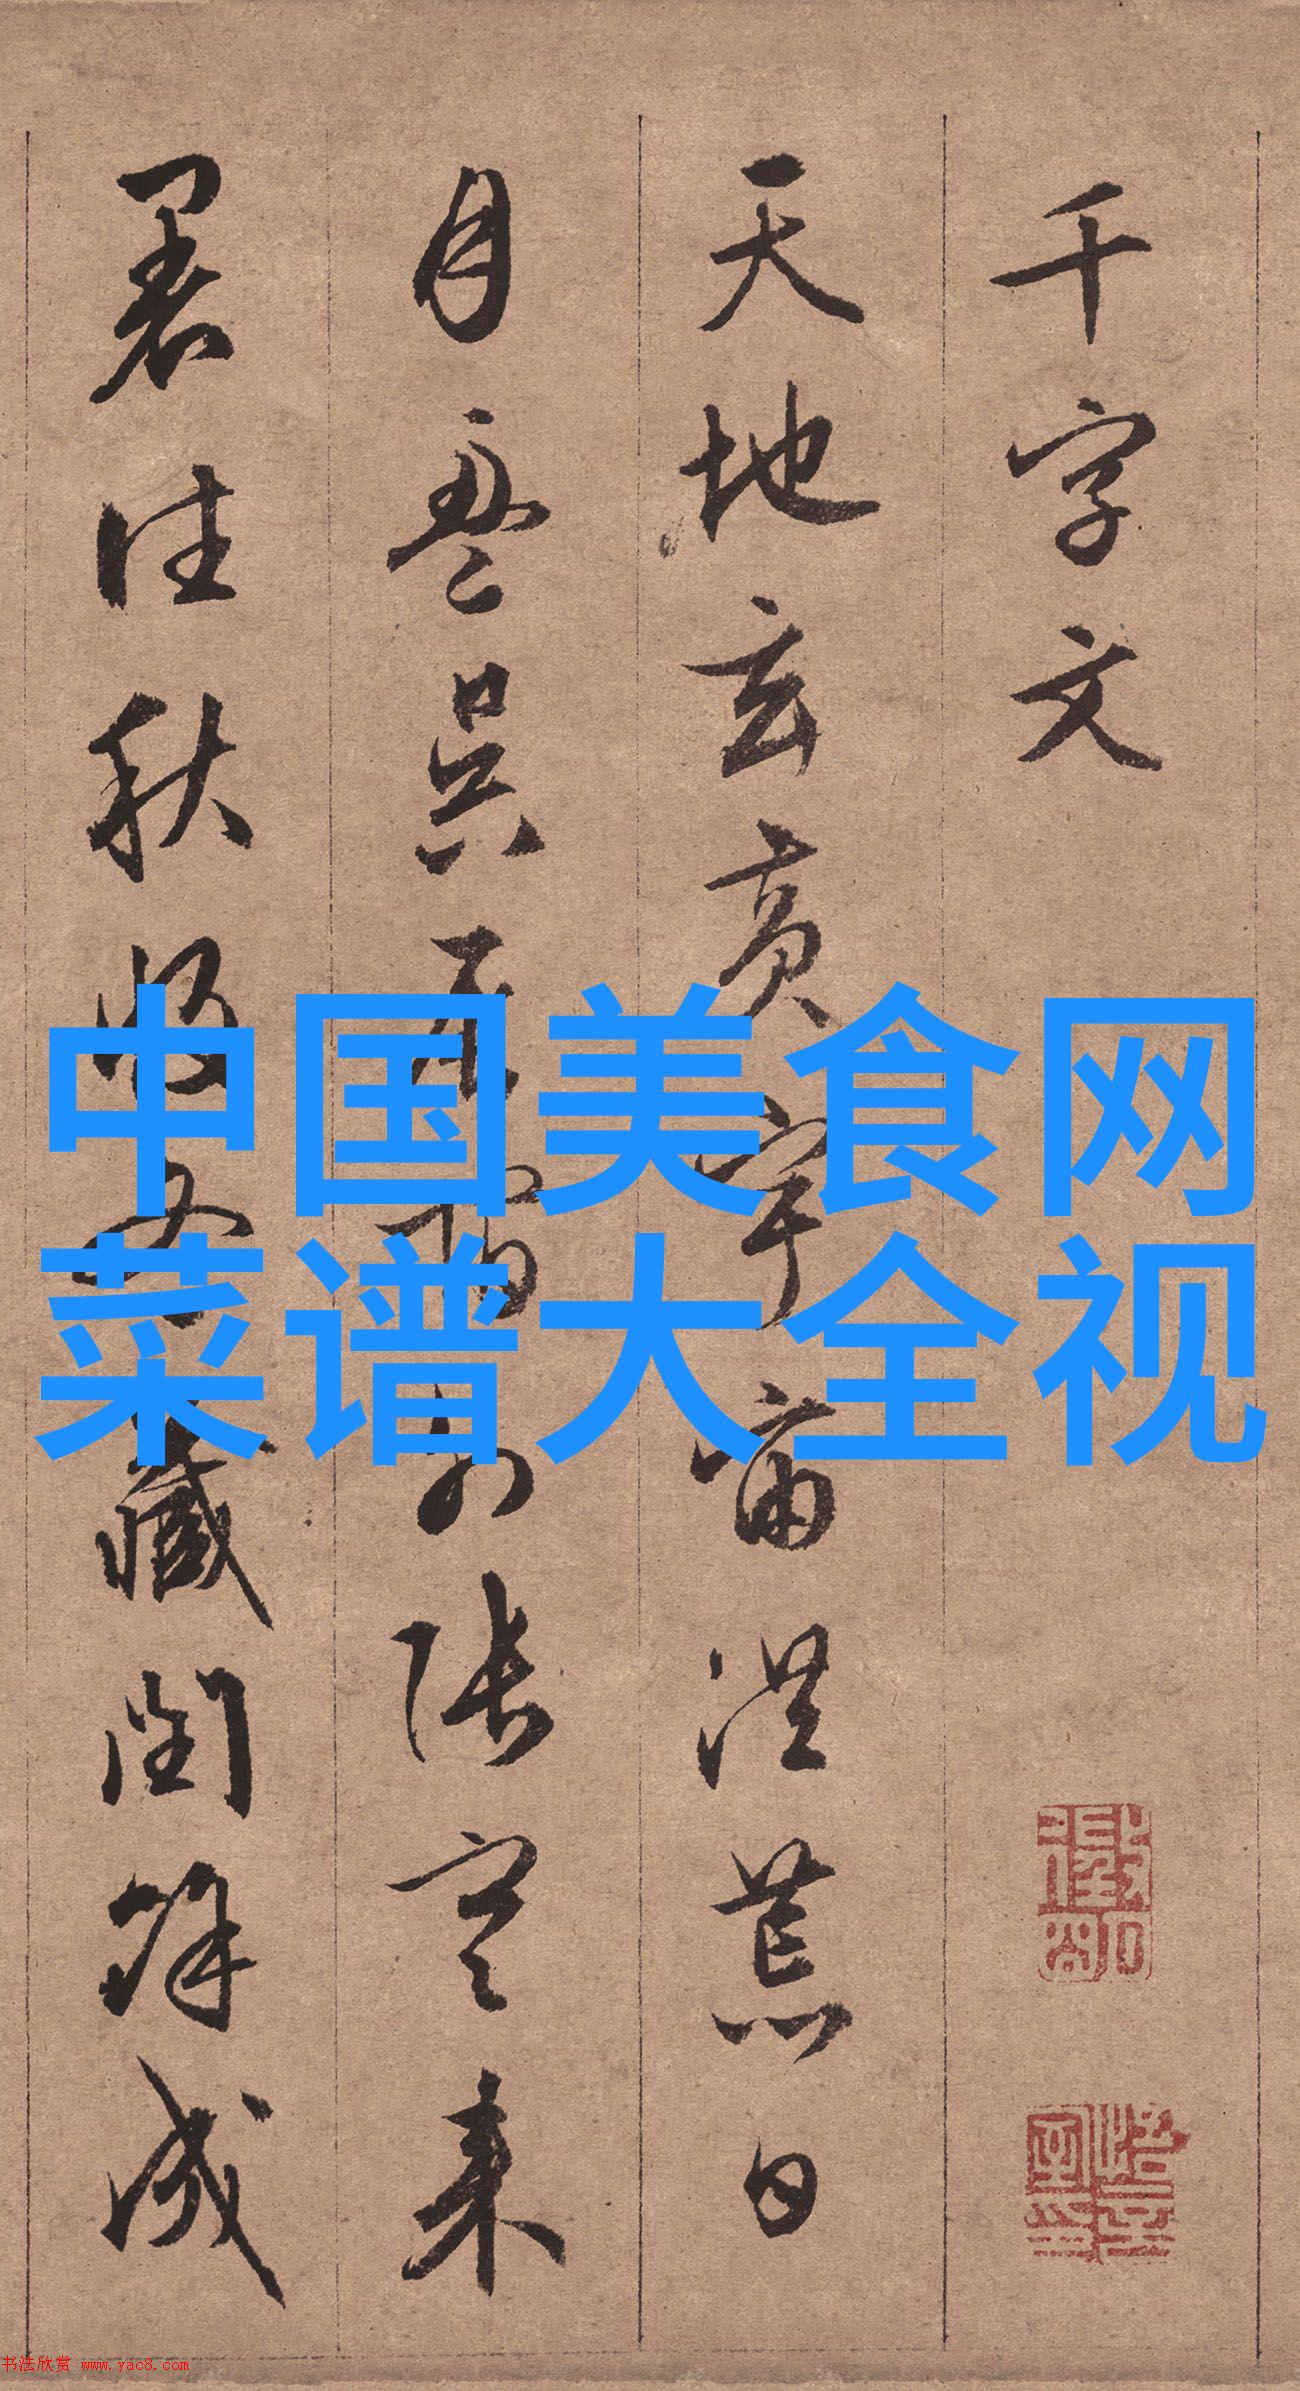 千字文
天地玄黃宇宙洪荒日
月盈昃辰宿列張寒来
暑往秋收冬藏閏餘成
中国美食网
菜谱大全视
书法欣赏 www.yac8.com